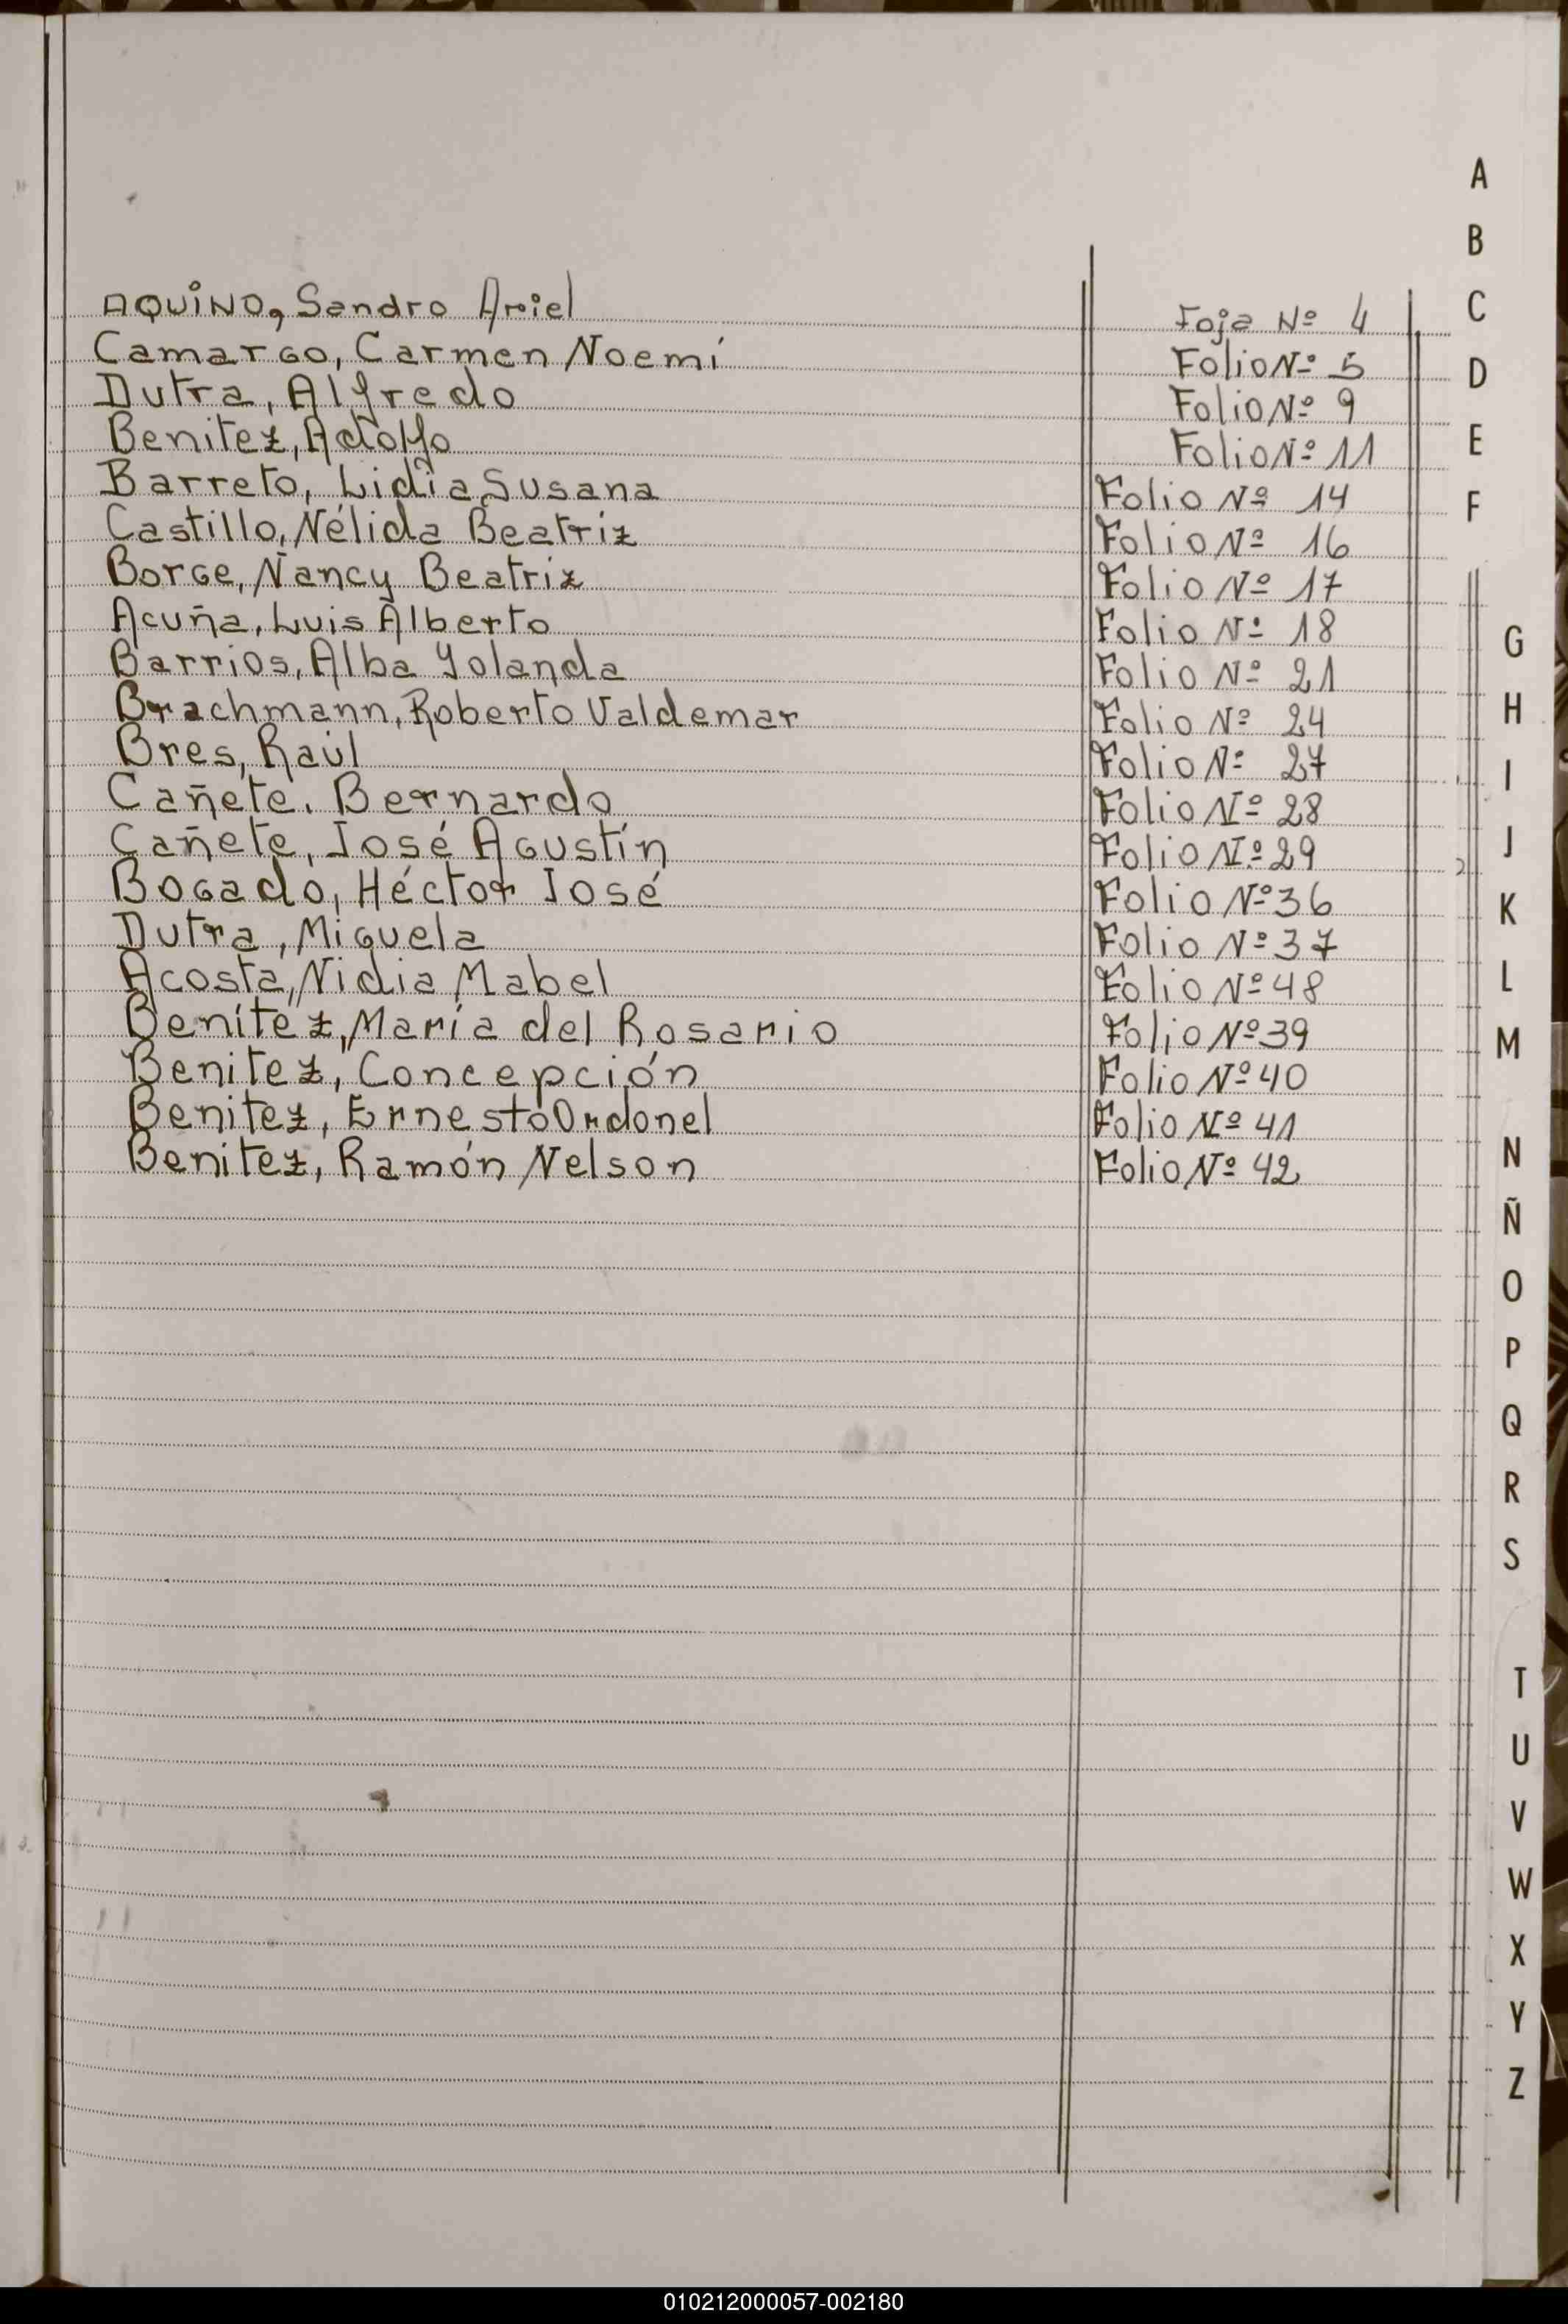 AQUINO, Sandro Ariel Foja Nº 4
Camargo, Carmen Noemí Folio Nº 5
Dutra, Alfredo Folio Nº 9
Benitez, Adolfo Folio Nº 11
Barreto, Lidia Susana Folio Nº 14
Castillo, Nélida Beatriz Folio Nº 16
Borge, Nancy Beatriz Folio Nº 17
Acuña, Luis Alberto Folio Nº 18
Barrios, Alba Yolanda Folio Nº 21
Brachmann, Roberto Valdemar Folio Nº 24
Bres, Raúl Folio Nº 27
Cañete, Bernardo Folio Nº 28
Cañete, José Agustín Folio Nº 29
Bogado, Héctor José Folio Nº 36
Dutra, Miguela Folio Nº 37
Acosta, Nidia Mabel Folio Nº 48
Benítez, María del Rosario Folio Nº 39
Benitez, Concepción Folio Nº 40
Benitez, Ernesto Ordonel Folio Nº 41
Benitez, Ramón Nelson Folio Nº 42
A
B
C
D
E
F
G
H
I
J
K
L
M
N
Ñ
O
P
Q
R
S
T
U
V
W
X
Y
Z
010212000057-002180